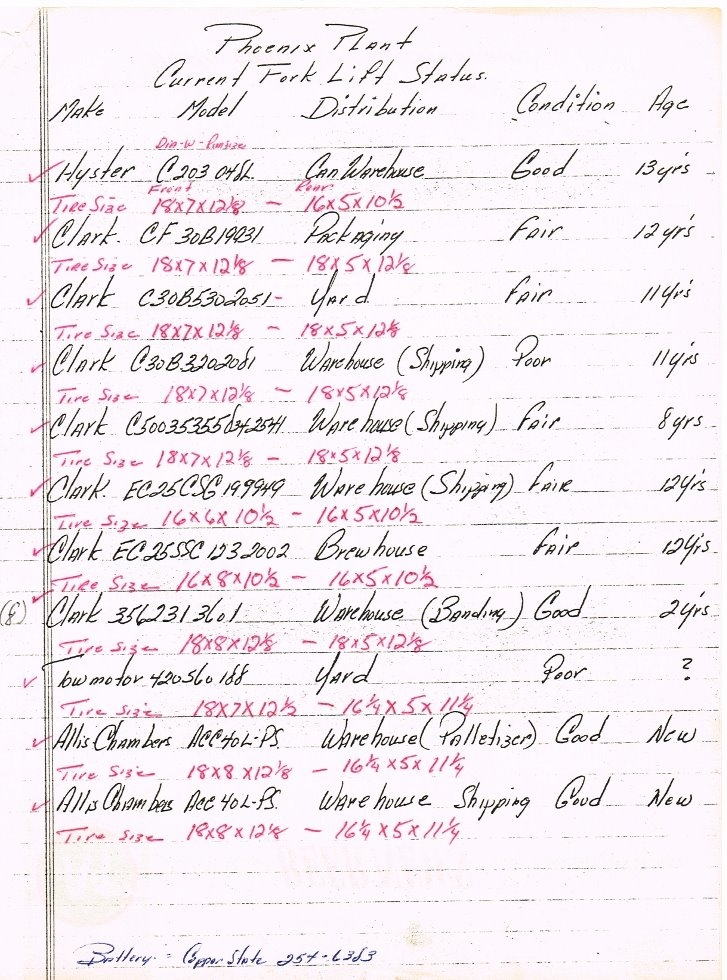 Phoenix Plant
Current Fork Lift Status.
Make Model Distribution Condition Age
Dia-W-Rimsize
Hyster C203 04SL Can Warehouse Good 13yr's
Front Rear
Tire Size 18x7x12 1/8 - 16x5x10 1/2
Clark. CF 30B19931 Packaging Fair 12yr's
Tire Size 18x7x12 1/8 - 18x5x12 1/8
Clark C30B5302051- Yard Fair 11yr's
Tire Size 18x7x12 1/8 - 18x5x12 1/8
Clark C30B3202081 Warehouse (Shipping) Poor 11yrs
Tire Size 18x7x12 1/8 - 18x5x12 1/8
Clark Warehouse (Shipping) Fair 8yrs
Tire Size 18x7x12 1/8 - 18x5x12 1/8
Clark. EC25CSG 199949 Warehouse (Shipping) Fair 12yr's
Tire Size 16x6x10 1/2 - 16x5x10 1/2
Clark EC25SSC 1232002 Brewhouse Fair 12yr's
Tire Size 16x8x10 1/2 - 16x5x10 1/2
(8) Clark 3562313601 Warehouse (Banding) Good 2yrs
Tire Size 18x8x12 1/8 - 18x5x12 1/8
Towmotor 420560188 Yard Poor ?
Tire Size 18x7x12 1/2 - 16 1/4 x5x11 1/4
Allis Chambers ACC40L-PS. Warehouse (Palletizer) Good New
Tire Size 18x8x12 1/8 - 16 1/4 x5x11 1/4
Allis Chambers Acc 40L-PS. Warehouse Shipping Good New
Tire Size 18x8x12 1/8 - 16 1/4 x5x11 1/4
Battery : Copper State 254-6383